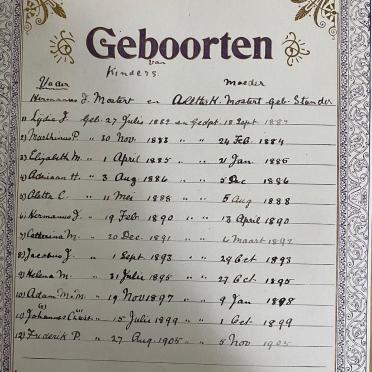 Geboorten
van
Kinders
Vaader Moeder
Hermanus J. Mostert en Aletta H. Mostert Geb. Stander
1) Lydia J. Geb. 27 Julie 1882 en Gedpt. 18 Sept 1882
2) Marthinus P. " 30 Nov. 1883 " " 24 Feb. 1884
3) Elizabeth M. " 1 April 1885 " " 21 Jun 1885
4) Adriaan H. " 3 Aug 1886 " " 5 Dec 1886
5) Aletta C. " 11 Mei 1888 " " 5 Aug 1888
6) Hermanus J. " 19 Feb 1890 " " 13 April 1890
7) Catherina M. " 20 Dec. 1891 " " 6 Maart 1892
8) Jacobus J. " 1 Sept 1893 " " 29 Oct 1893
9) Helena M. " 31 Julie 1895 " " 27 Oct. 1895
10) Adam M. M. " 19 Nov 1897 " " 9 Jan 1898
11) Johannes Christ. " 15 Julie 1899 " " 1 Oct 1899
12) Frederik P. " 27 Aug. 1905 " " 5 Nov 1905